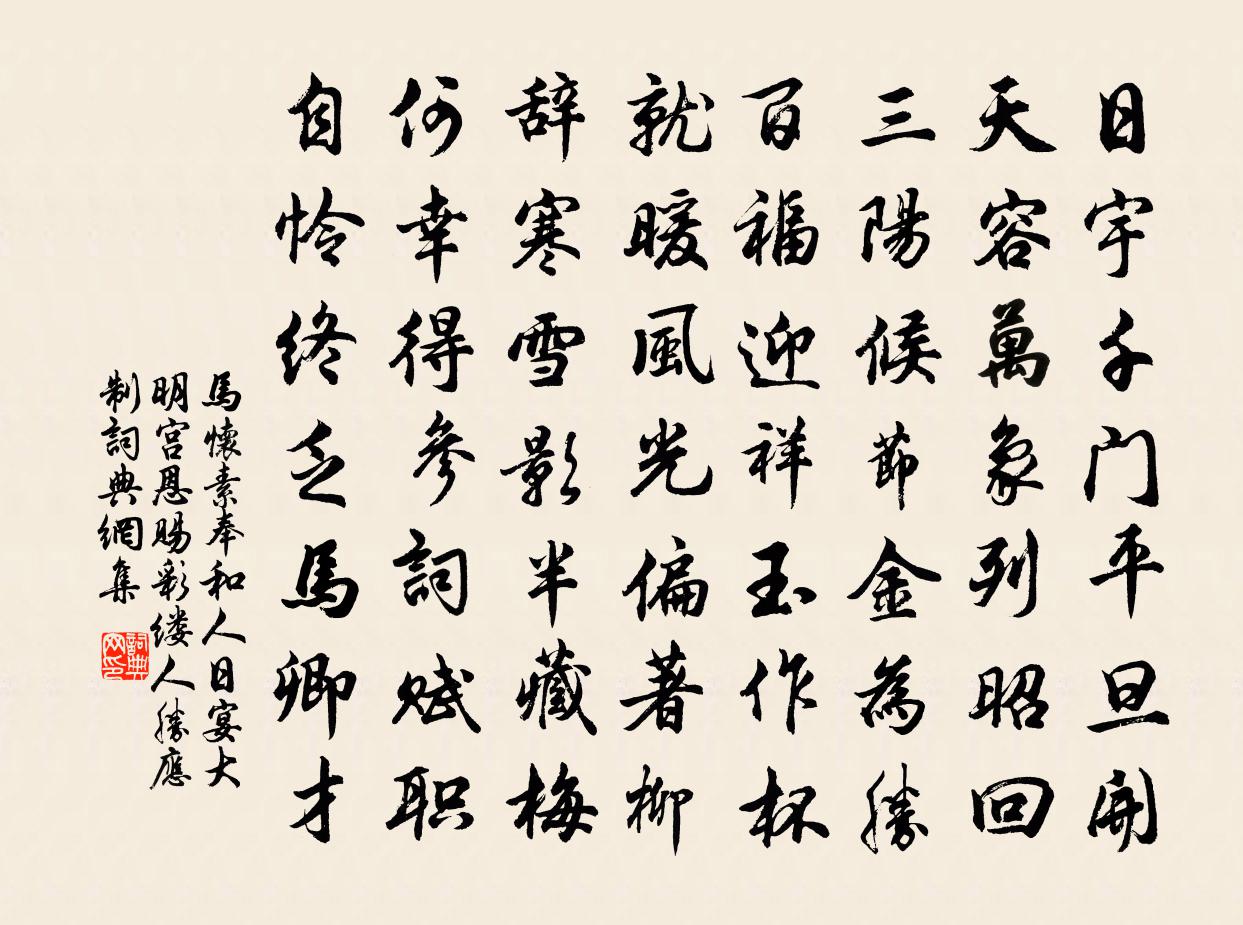 日宇千门平旦開
天容萬象列昭回
三陽候節金為勝
百福迎祥玉作杯
就暖風光偏著柳
辭寒雪影半藏梅
何幸得參詞賦职
自怜终乏馬卿才
馬懷素奉和人日宴大
明宫恩赐彩缕人勝應
制詞典網集
詞典
网印